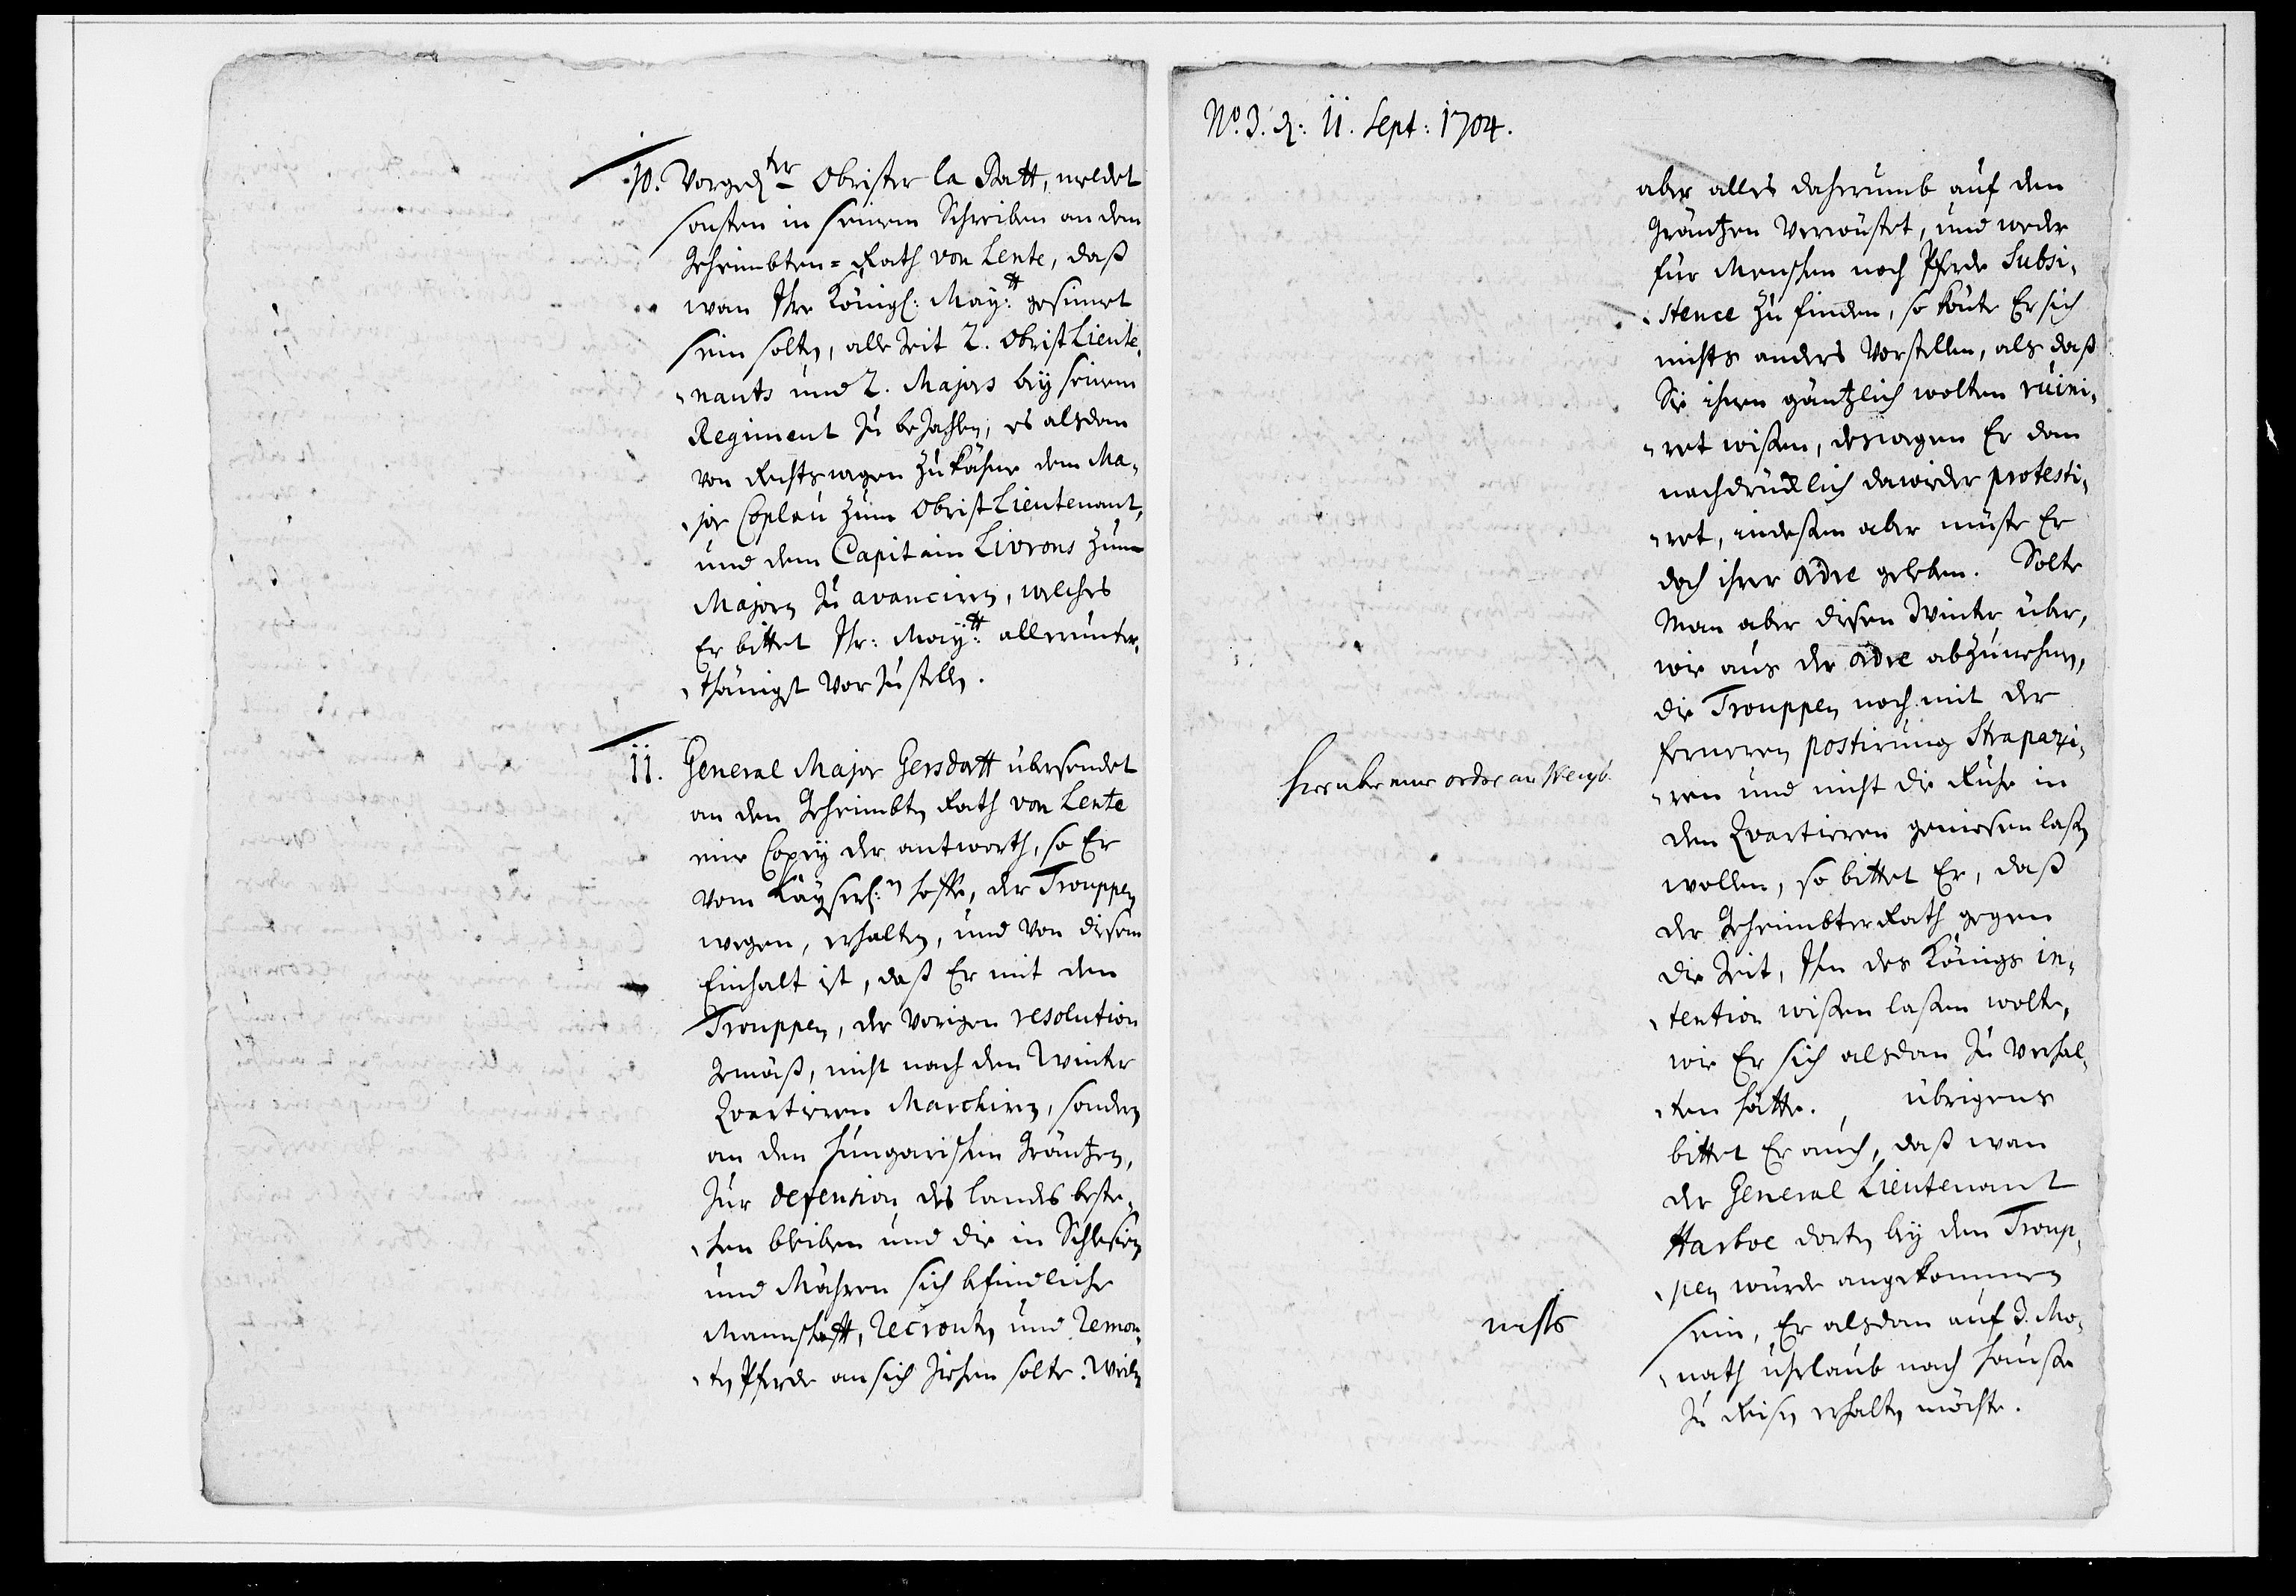 10. Vorged.ter Obrister la Batt, meldet
sonsten in seinem Schreiben an dem
Geheimbten=Rath von Lente, daß
wan Ihr Königl: May:tt gesinnet
sein solten, alle Zeit 2. Obrist Lieute,
nants und 2. Majors bey seinem
Regiment zu bezahlen, es alsdan
von Rechtswegen zukähme dem Ma,
jor Coplau zum Obrist Lieutenant,
und dem Capitain Livrons zum
Majorn zu avanciren, welches
Er bittet Ihr: May:tt allerunter,
thänigst vor zu stellen.
11. General Major Gersdorff übersendet
an den Geheimbten Rath von Lente
eine Copey der antworth, so Er
vom Käyserl:n Hoffe, der Trouppen
wegen, erhalten, und von diesem
Einhalt ist, daß Er mit den
Trouppen, der vorigen resolution
Gemäß, nicht nach den Winter
Quartieren Marchiren, sondern
an den Hungarischen Gräntzen,
zur defension des Landes beste,
hen bleiben und die in Schlesien
und Mähren sich befindliche
Mannschafft, recrouten und remon,
ten Pferde an sich ziehen solte. Weiln
No. 3. d: 11. Sept: 1704.
aber alles daherumb auf den
Gräntzen verwüstet, und weder
für Menschen noch Pferde Subsi,
stence zu finden, so könte Er sich
nichts anders vorstellen, als daß
Sie ihnen gäntzlich wolten ruini,
ret wißen, deswegen Er dan
nachdrücklich dawieder protesti,
ret, indeßen aber müste Er
doch ihrer ordre geleben. Solte
Man aber diesen Winter über,
wie aus der ordre abzunehmen,
die Trouppen noch mit der
ferneren postirung Strapazi,
ren und nicht die Ruhe in
den Quartieren geniesen laßen
wollen, so bittet Er, daß
der Geheimbter Rath gegen
die Zeit, Ihm des Königs in,
tention wißen laßen wolte,
wie Er sich alsdan zu verhal,
ten hätte. übrigens
bittet Er auch, daß wan
der General Lieutenant
Harboe dorten bey den Troup,
pen würde angekommen
sein, Er alsdan auf 3. Mo,
nath uhrlaub nach Hauße
zu Reisen erhalten möchte.
hierüber eine ordre an
nichts